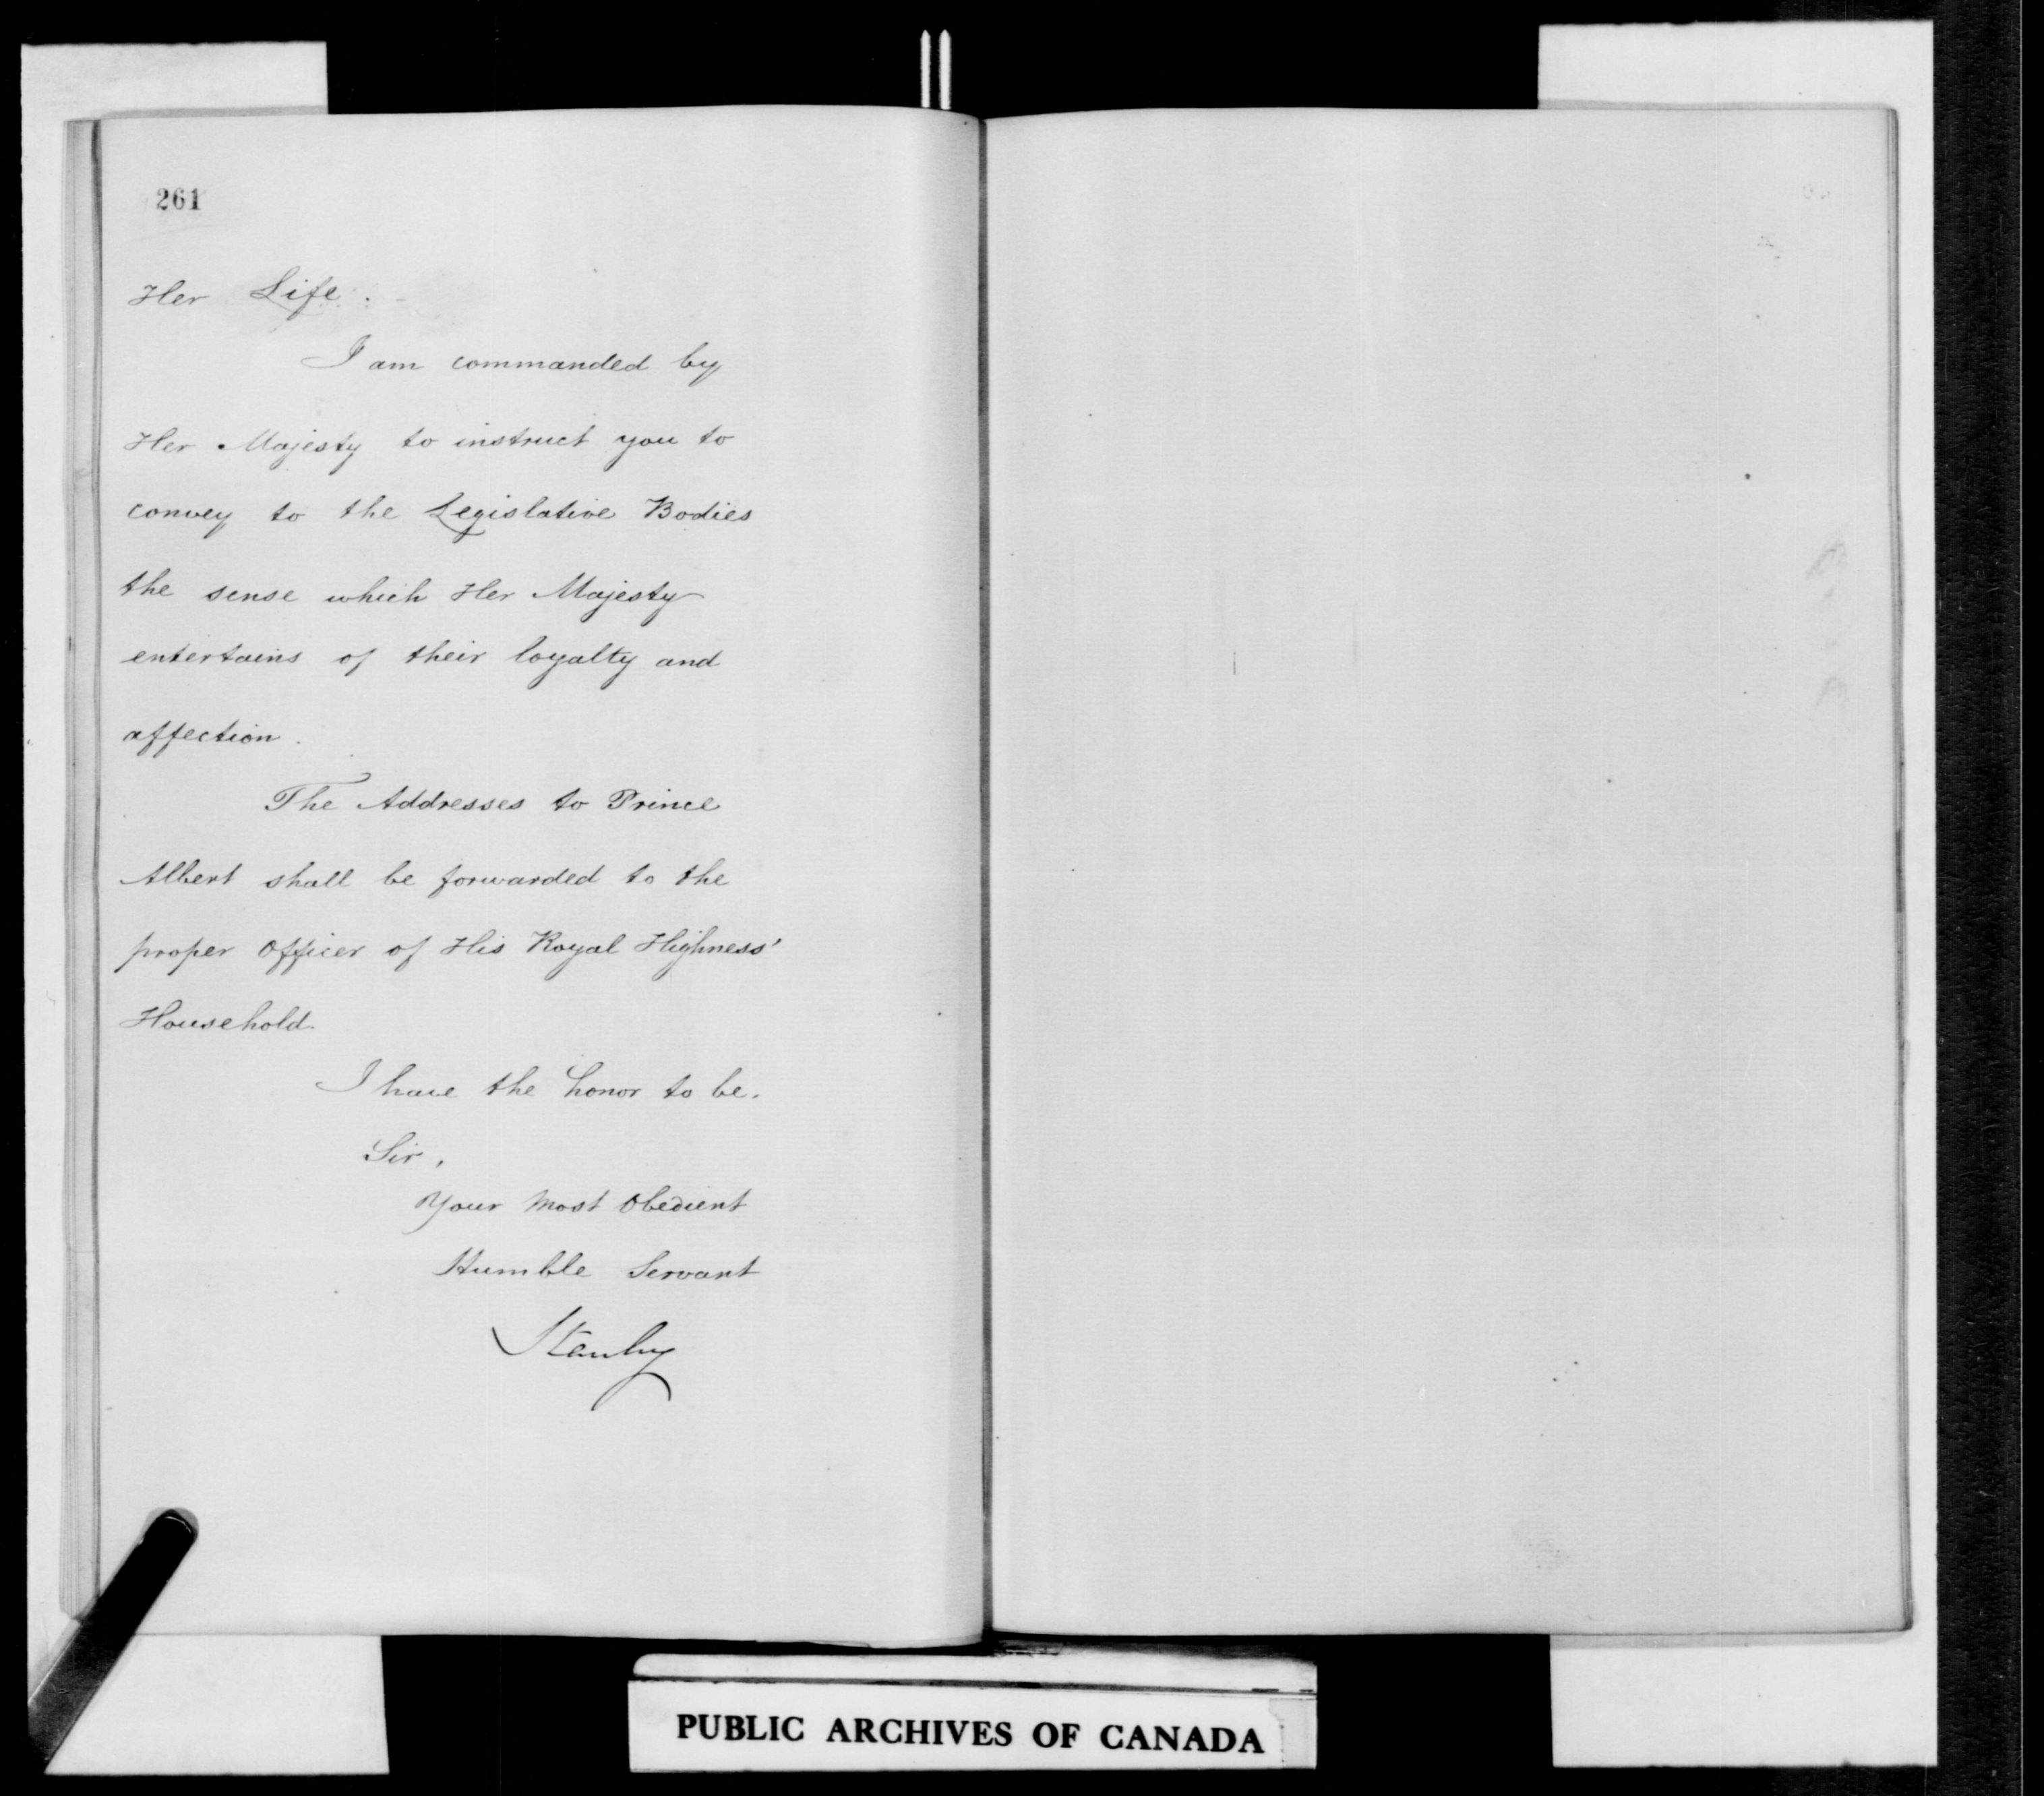 261
Her Life.
I am commanded by
Her Majesty to instruct you to
convey to the Legislative Bodies
the sense which Her Majesty
entertains of their loyalty and
affection.
The Addresses to Prince
Albert shall be forwarded to the
proper Officer of His Royal Highness'
Household.
I have the honor to be.
Sir,
Your Most Obedient
Humble Servant
Stanley
PUBLIC ARCHIVES OF CANADA